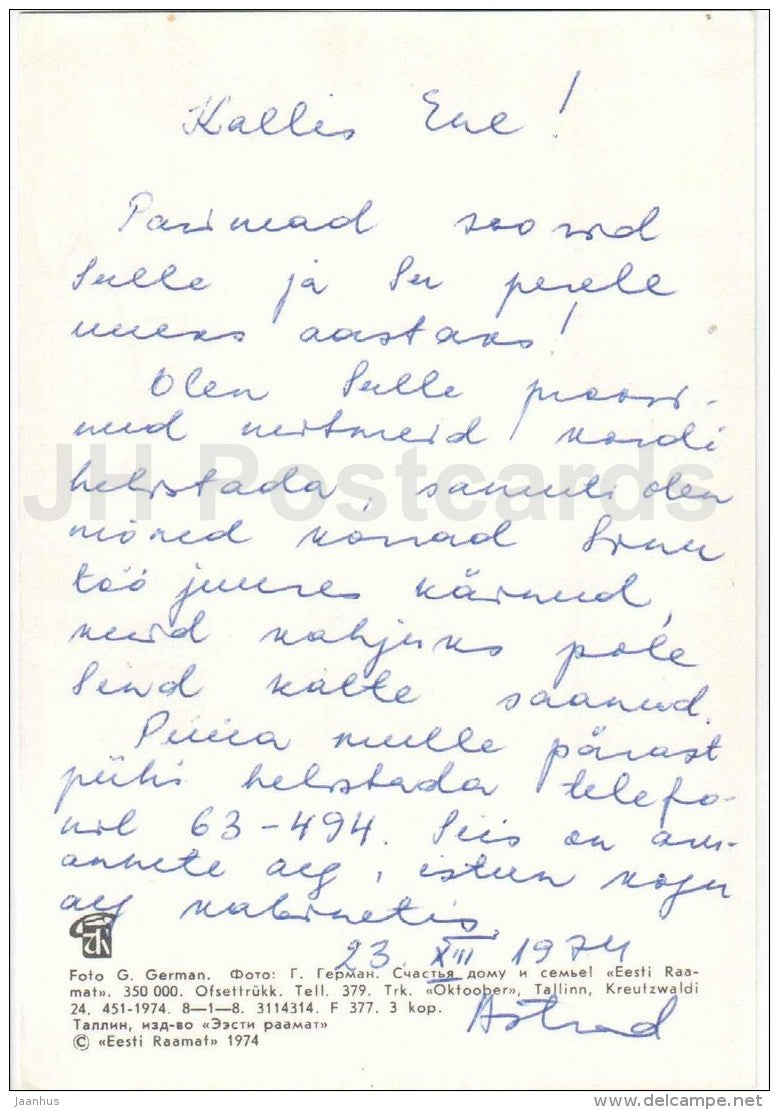 Kallis Ene!
Parimad soovid
Sulle ja Su perele
uueks aastaks!
Olen Sulle proovi-
nud mitmeid kordi
helistada, samuti olen
mõned korrad Sinu
töö juures käinud,
kuid kahjuks pole
Sind kätte saanud.
Püüa mulle pärast
pühi helistada telefo-
nil 63-494. Siis on aru-
annete aeg, istun kogu
aeg kabinetis.
23. XII 1974
Foto G. German. Фото: Г. Герман. Счастья дому и семье! «Eesti Raa-
mat». 350 000. Ofsettrükk. Tell. 379. Trk. «Oktoober», Tallinn, Kreutzwaldi
24. 451-1974. 8—1—8. 3114314. F 377. 3 kop.
Таллин, изд-во «Ээсти раамат»
© «Eesti Raamat» 1974
Astrad
JH Postcards
Jaanhus
www.delcampe.net